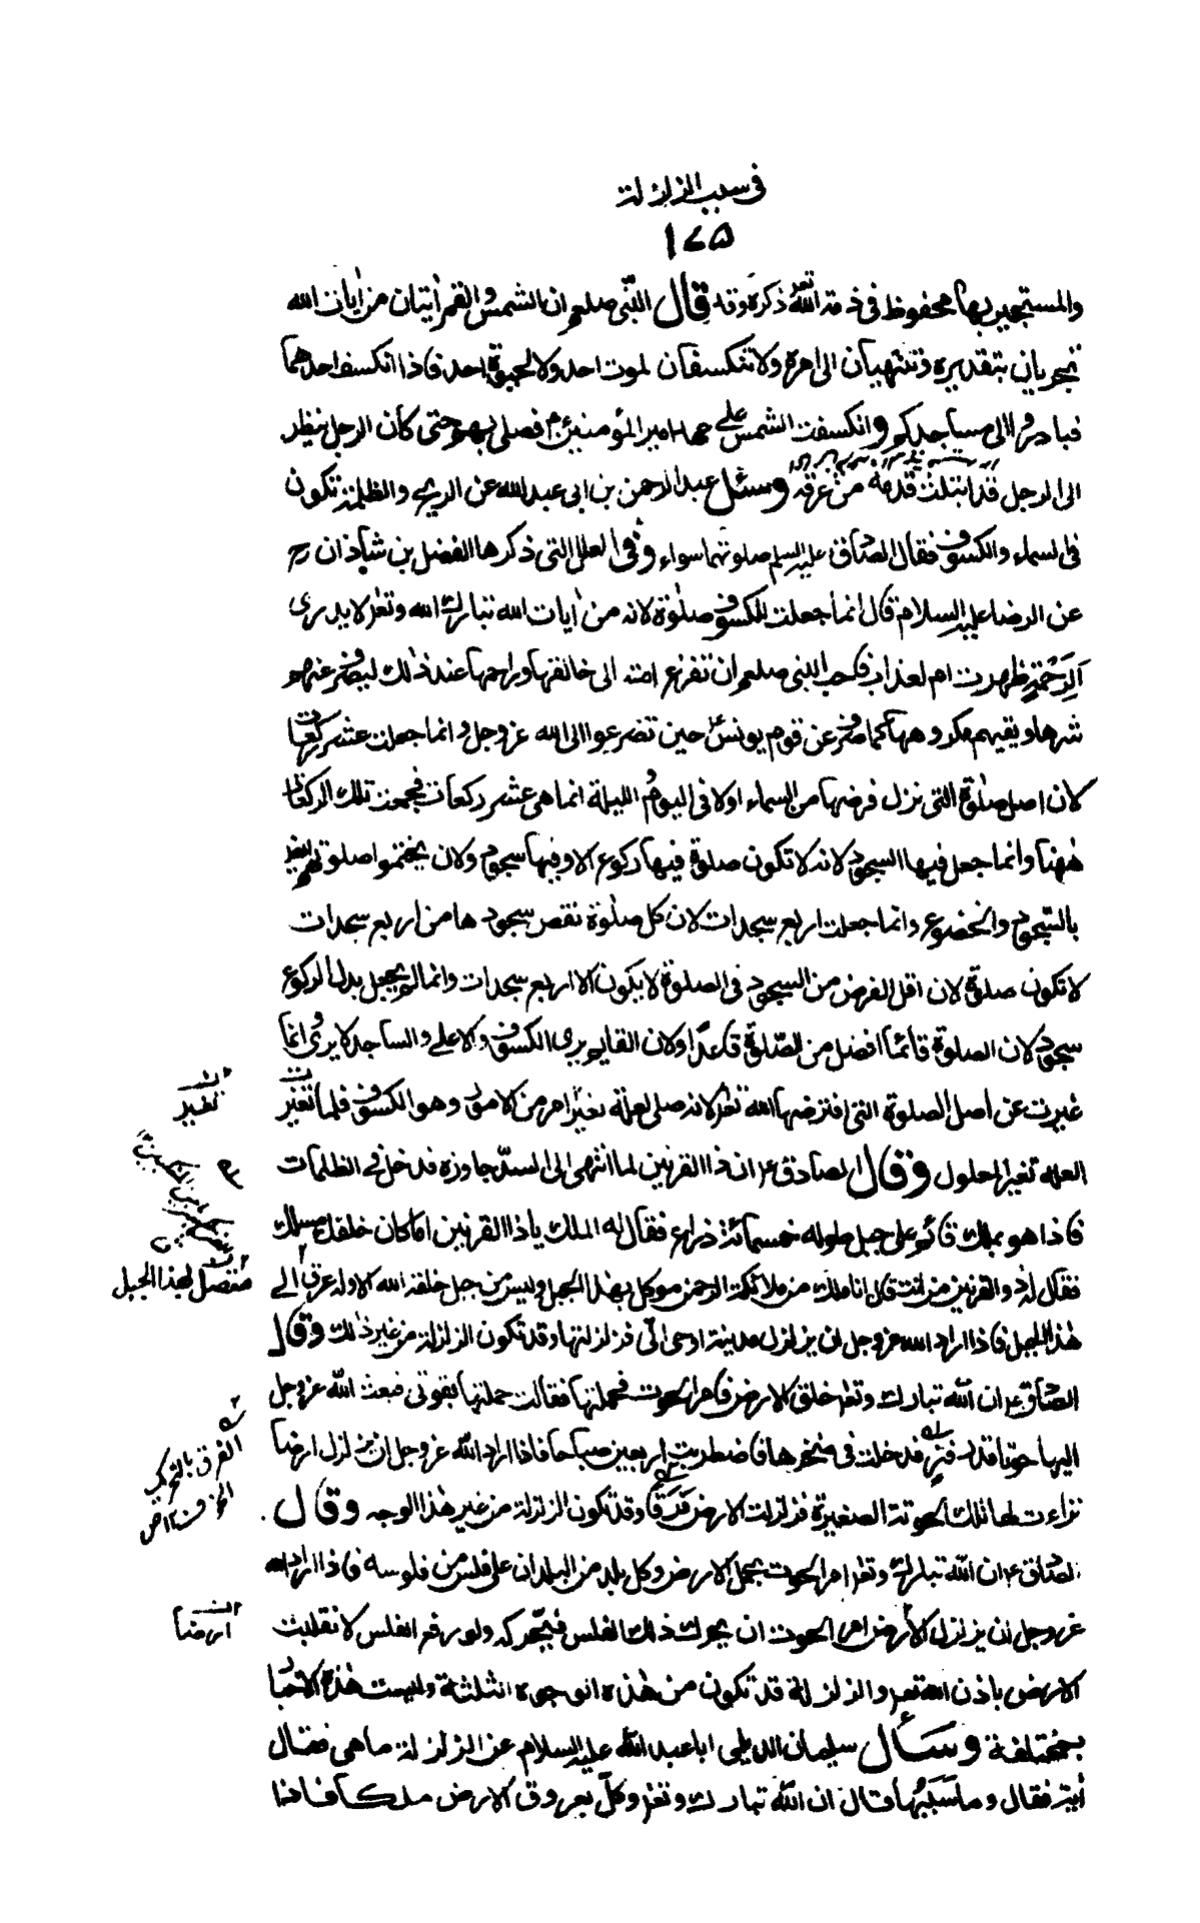 في سبب الزلزلة
١٧۵
والمستجير بها محفوظ في ذمة الله تعم ذكره وقه قال النبي صلعم ان الشمس والقمر اٰيتان من اٰيات الله
تجريان بتقديره وتنتهيان الى امره ولا تنكسفان لموت احد ولا لحيوة احد فاذا انكسف احدهما
فبادروا الى مساجدكم وانكسفت الشمس على عهد امير المؤمنين ع فصلى بهم حتى كان الرجل ينظر
الى الرجل قد ابتلت قدمه من عرقه وسئل عبد الرحمن بن ابي عبد الله عن الريح والظلمة تكون
في السماء والكسوف فقال الصادق عليه السلم صلوتهما سواء وفي العلل التي ذكرها الفضل بن شاذان رح
عن الرضا عليه السلام قال انما جعلت للكسوف صلوٰة لانه من اٰيات الله تبارك الله وتعلا لا يدرى
الرحمة ظهرت ام لعذاب فاحب النبي صلعم ان تفزع امته الى خالقها وراحمها عند ذٰلك ليصرف عنهم
شرها ويقيهم مكروهها كما صرف عن قوم يونس ع حين تضرعوا الى الله عز وجل وانما جعلت عشر ركعات
لان اصل صلوٰة التي نزل فرضها من السماء اولا في اليوم والليلة انما هي عشر ركعات فجمعت تلك الركعات
هٰهنا وانما جعل فيها السجود لانه لا تكون صلوة فيها ركوع الا وفيها سجود ولان يختموا صلوتهم ايضا
بالسجود والخضوع وانما جعلت اربع سجدات لان كل صلوٰة نقص سجودها من اربع سجدات
لا تكون صلوة لان اقل الفرض من السجود في الصلوة لا يكون الا اربع سجدات وانما لم يجعل بدل الركوع
سجود لان الصلوة قائما افضل من الصلوة قاعدا ولان القايم يرى الكسوف والاعلى والساجد لا يرى وانما
غيرت عن اصل الصلوة التي افترضها الله تعم لانه صلى لعلة تغير امر من الامور وهو الكسوف فلما تغيرت
العلة تغير المعلول وقال الصادق ع ان ذا القرنين لما انتهى الى السد جاوزه فدخل في الظلمات
فاذا هو بملك قائم على جبل طوله خمسمائة ذراع فقال له الملك ياذا القرنين اما كان خلفك مسلك
فقال له ذو القرنين من انت قال انا ملك من ملائكة الرحمن موكل بهذا الجبل وليس من جبل خلقه الله الا وله عرق الى
هٰذا الجبل فاذا اراد الله عز وجل ان يزلزل مدينة اوحى الي فزلزلتها وقد تكون الزلزلة من غير ذٰلك وقال
الصادق ع ان الله تبارك وتعلا خلق الارض فامر الحوت فحملتها فقالت حملتها بقوتي فبعث الله عز وجل
اليها حوتا قدر فتر فدخلت في منخرها فاضطربت اربعين صباحا فاذا اراد الله عز وجل ان يزلزل ارضا
تراءت لها تلك الحوتة الصغيرة فزلزلت الارض فرقا وقد تكون الزلزلة من غير هٰذا الوجه وقال
الصادق ع ان الله تبارك وتعلا امر الحوت بحمل الارض وكل بلد من البلدان على فلس من فلوسه فاذا اراد الله
عز وجل ان يزلزل الارض امر الحوت ان يحرك ذلك الفلس فيحركه ولو رفع الفلس لانقلبت
الارض باذن الله تعم والزلزلة قد تكون من هٰذه الوجوه الثلثة وليست هٰذه الاخبار
بمختلفة وسأل سليمان الديلمي ابا عبد الله عليه السلام عن الزلزلة ما هي فقال
أية فقال وما سببها قال ان الله تبارك وتعلا وكل بعروق الارض ملكا فاذا
تغير
متصل بهذا الجبل
الفرق بالتحريك
الخوف ١٢ ص
ارضا